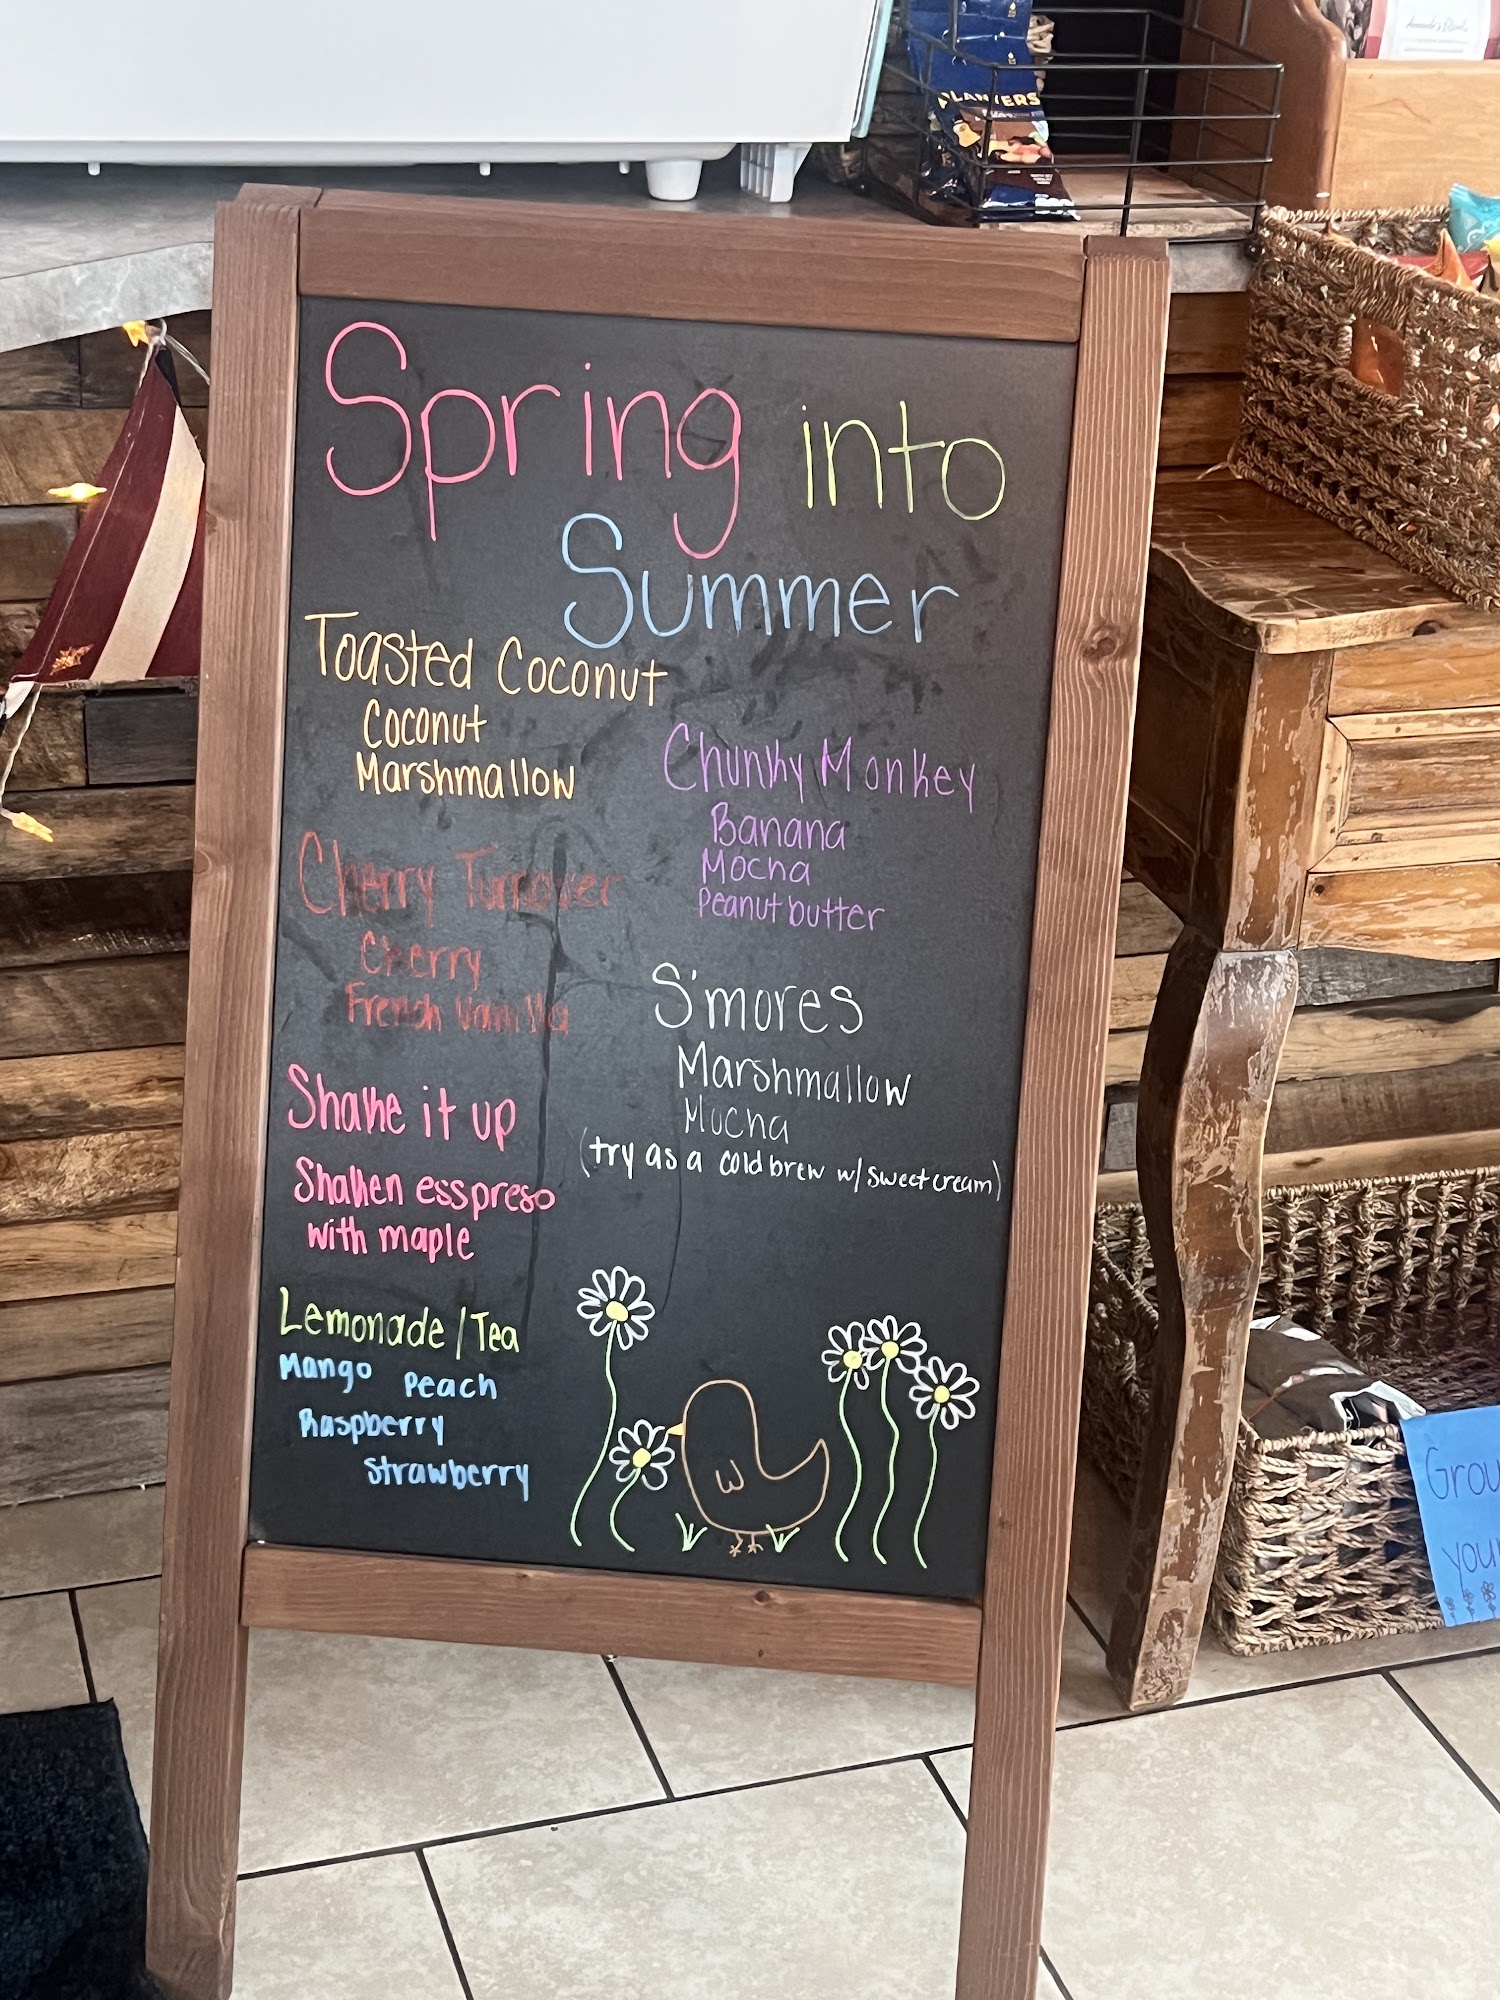 Spring into
Summer
Toasted Coconut
Coconut
Marshmallow
Chunky Monkey
Banana
Mocha
Peanut butter
Cherry Turnover
Cherry
French Vanilla
S'mores
Marshmallow
Mocha
(try as a cold brew w/ sweet cream)
Shake it up
Shaken esspreso
with maple
Lemonade/Tea
Mango Peach
Raspberry
Strawberry
PLANTERS